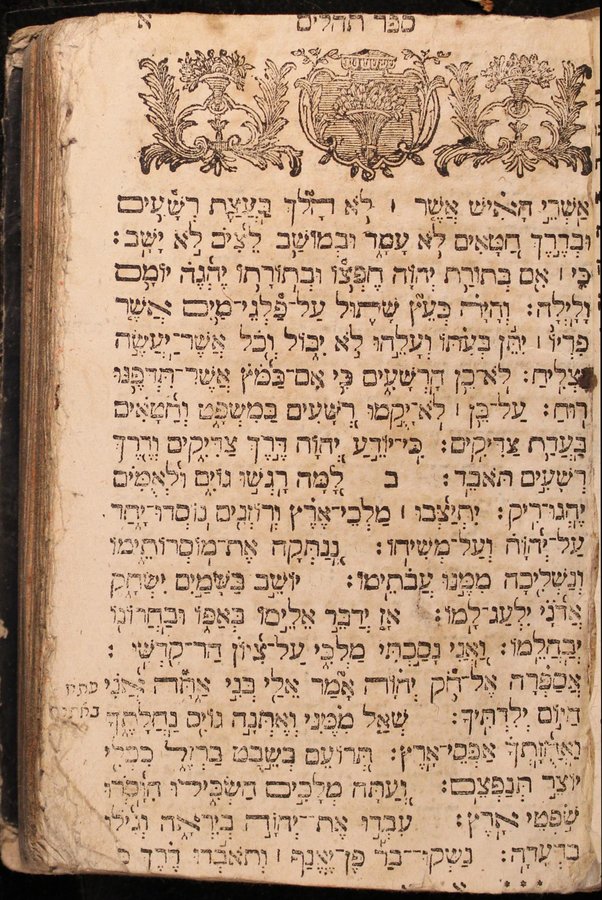 ספר תהלים א
אַשְׁרֵי הָאִישׁ אֲשֶׁר ׀ לֹא הָלַךְ בַּעֲצַת רְשָׁעִים
וּבְדֶרֶךְ חַטָּאִים לֹא עָמָד וּבְמוֹשַׁב לֵצִים לֹא יָשָׁב׃
כִּי ׀ אִם בְּתוֹרַת יְהֹוָה חֶפְצוֹ וּבְתוֹרָתוֹ יֶהְגֶּה יוֹמָם
וָלָיְלָה׃ וְהָיָה כְּעֵץ שָׁתוּל עַל־פַּלְגֵי־מָיִם אֲשֶׁר
פִּרְיוֹ ׀ יִתֵּן בְּעִתּוֹ וְעָלֵהוּ לֹא יִבּוֹל וְכֹל אֲשֶׁר־יַעֲשֶׂה
יַצְלִיחַ׃ לֹא־כֵן הָרְשָׁעִים כִּי אִם־כַּמֹּץ אֲשֶׁר־תִּדְּפֶנּוּ
רוּחַ׃ עַל־כֵּן ׀ לֹא־יָקֻמוּ רְשָׁעִים בַּמִּשְׁפָּט וְחַטָּאִים
בַּעֲדַת צַדִּיקִים׃ כִּי־יוֹדֵעַ יְהֹוָה דֶּרֶךְ צַדִּיקִים וְדֶרֶךְ
רְשָׁעִים תֹּאבֵד׃ ב לָמָּה רָגְשׁוּ גוֹיִם וּלְאֻמִּים
יֶהְגּוּ־רִיק׃ יִתְיַצְּבוּ ׀ מַלְכֵי־אֶרֶץ וְרוֹזְנִים נוֹסְדוּ־יָחַד
עַל־יְהֹוָה וְעַל־מְשִׁיחוֹ׃ נְנַתְּקָה אֶת־מוֹסְרוֹתֵימוֹ
וְנַשְׁלִיכָה מִמֶּנּוּ עֲבֹתֵימוֹ׃ יוֹשֵׁב בַּשָּׁמַיִם יִשְׂחָק
אֲדֹנָי יִלְעַג־לָמוֹ׃ אָז יְדַבֵּר אֵלֵימוֹ בְאַפּוֹ וּבַחֲרוֹנוֹ
יְבַהֲלֵמוֹ׃ וַאֲנִי נָסַכְתִּי מַלְכִּי עַל־צִיּוֹן הַר־קָדְשִׁי׃
אֲסַפְּרָה אֶל־חֹק יְהֹוָה אָמַר אֵלַי בְּנִי אַתָּה אֲנִי
הַיּוֹם יְלִדְתִּיךָ׃ שְׁאַל מִמֶּנִּי וְאֶתְּנָה גוֹיִם נַחֲלָתֶךָ
וַאֲחֻזָּתְךָ אַפְסֵי־אָרֶץ׃ תְּרֹעֵם בְּשֵׁבֶט בַּרְזֶל כִּכְלִי
יוֹצֵר תְּנַפְּצֵם׃ וְעַתָּה מְלָכִים הַשְׂכִּילוּ הִוָּסְרוּ
שֹׁפְטֵי אָרֶץ׃ עִבְדוּ אֶת־יְהֹוָה בְּיִרְאָה וְגִילוּ
בִּרְעָדָה׃ נַשְּׁקוּ־בַר פֶּן־יֶאֱנַף ׀ וְתֹאבְדוּ דֶרֶךְ כ